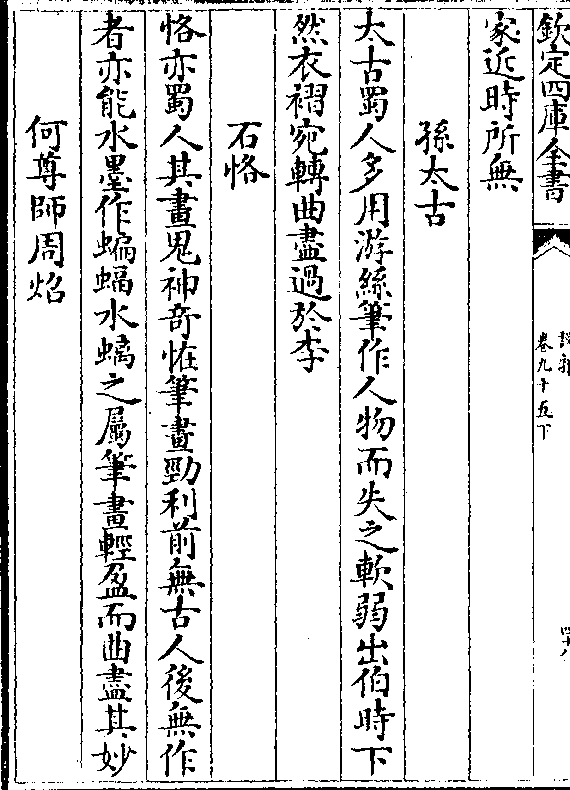 欽定四庫全書
說郛
卷九十五下
四十八
家近時所無
孫太古
太古蜀人多用游絲筆作人物而失之軟弱出伯時下
然衣褶宛轉曲盡過於李
石恪
恪亦蜀人其畫鬼神奇恠筆畫勁利前無古人後無作
者亦能水墨作蝙蝠水螭之屬筆畫輕盈而曲盡其妙
何尊師周炤